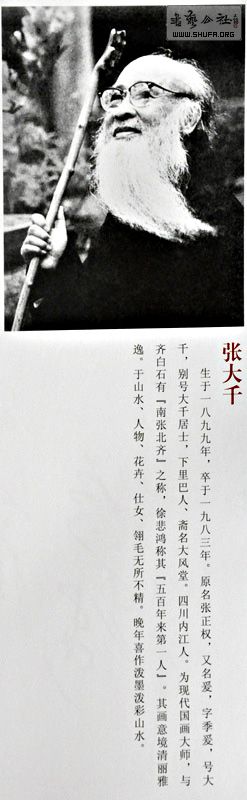 书艺公社
WWW.SHUFA.ORG
张大千
生于一八九九年，卒于一九八三年。原名张正权，又名爰，字季爰，号大
千，别号大千居士，下里巴人、斋名大风堂。四川内江人。为现代国画大师，与
齐白石有『南张北齐』之称，徐悲鸿称其『五百年来第一人』。其画意境清丽雅
逸。于山水、人物、花卉、仕女、翎毛无所不精。晚年喜作泼墨泼彩山水。